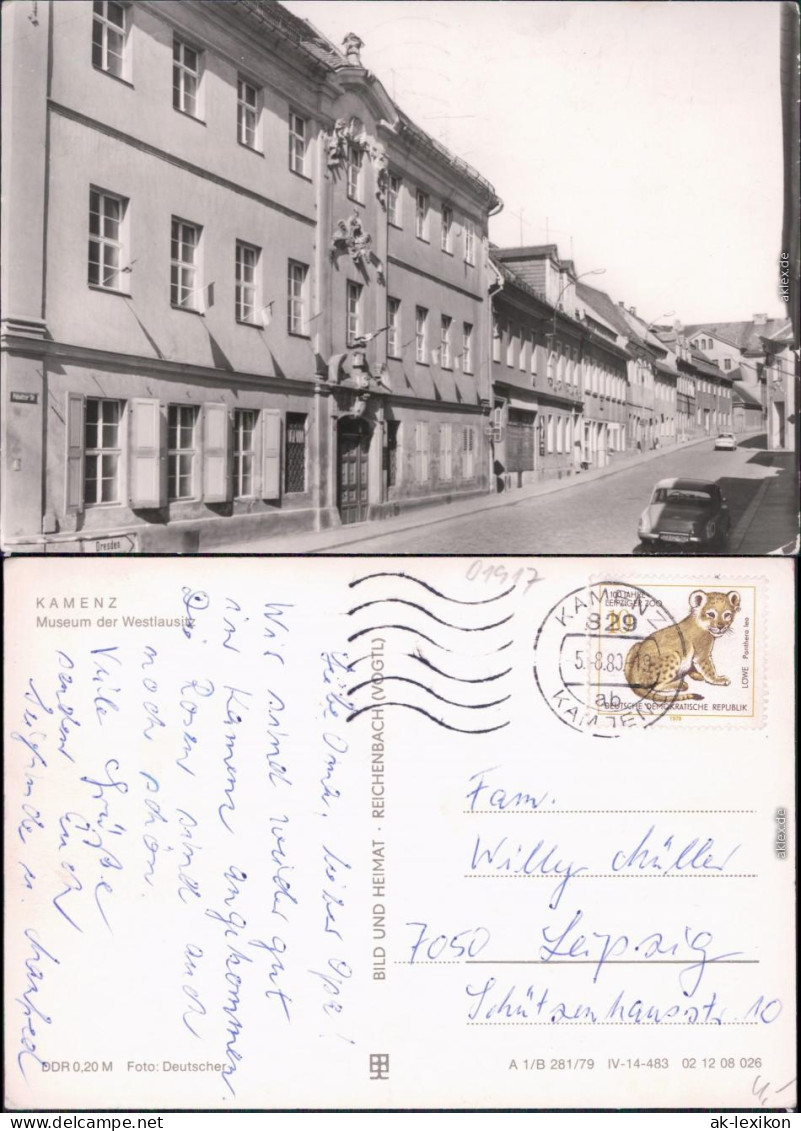 Dresden
aklex.de
KAMENZ
Museum der Westlausitz
Liebe Oma, lieber Opa!
Wir sind wieder gut
in Kamenz angekommen.
Die Rosen sind auch
noch schön.
Viele Grüße
senden Euch
u. Manfred
DDR 0,20 M Foto: Deutscher
BILD UND HEIMAT · REICHENBACH (VOGTL)
01917
KAMENZ
829
5.-8.80.-19
ab
KAMENZ
100 JAHRE
LEIPZIGER ZOO
LÖWE Panthera leo
DEUTSCHE DEMOKRATISCHE REPUBLIK
1978
Fam.
Willy Müller
7050 Leipzig
Schützenhausstr. 10
A 1/B 281/79 IV-14-483 02 12 08 026
aklex.de
ak-lexikon
www.ak-lexikon.de